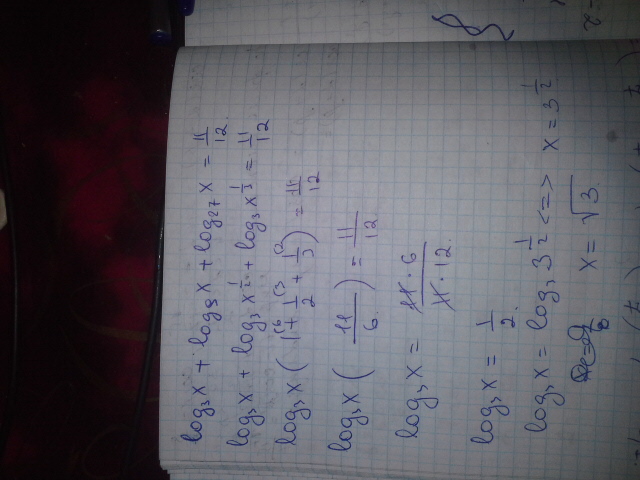 log₃x + log₉x + log₂₇x = 11/12.
log₃x + log₃x^(1/2) + log₃x^(1/3) = 11/12
log₃x (1^(6 + 1^(3/2 + 1^(2/3) = 11/12
log₃x (11/6.) = 11/12
log₃x = 11·6/11·12.
log₃x = 1/2.
log₃x = log₃3^(1/2) <=> x = 3^(1/2)
x = √3